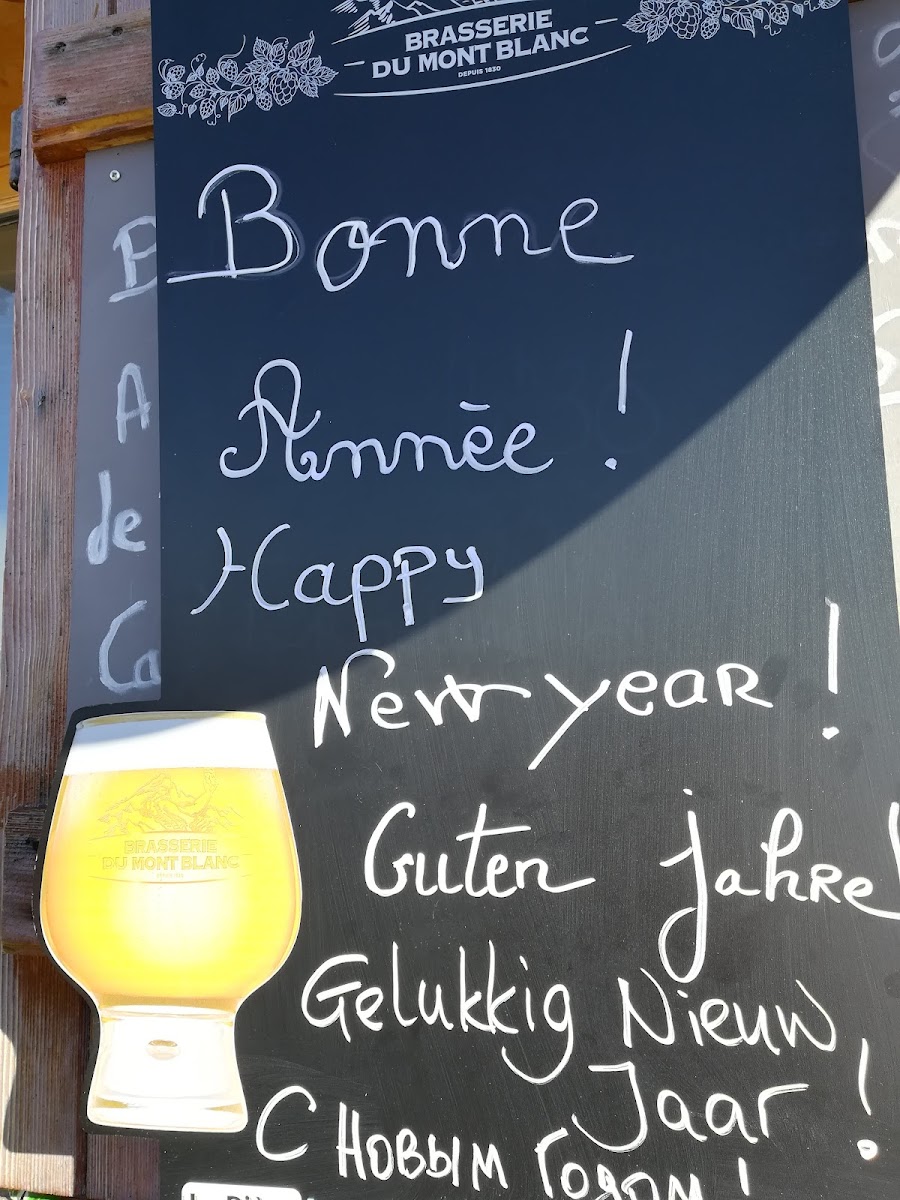 BRASSERIE
DU MONT BLANC
DEPUIS 1830
Bonne
Année !
Happy
New year !
Guten Jahre!
Gelukkig Nieuw
Jaar !
С Новым Годом !
B
A
de
Ca
BRASSERIE
DU MONT BLANC